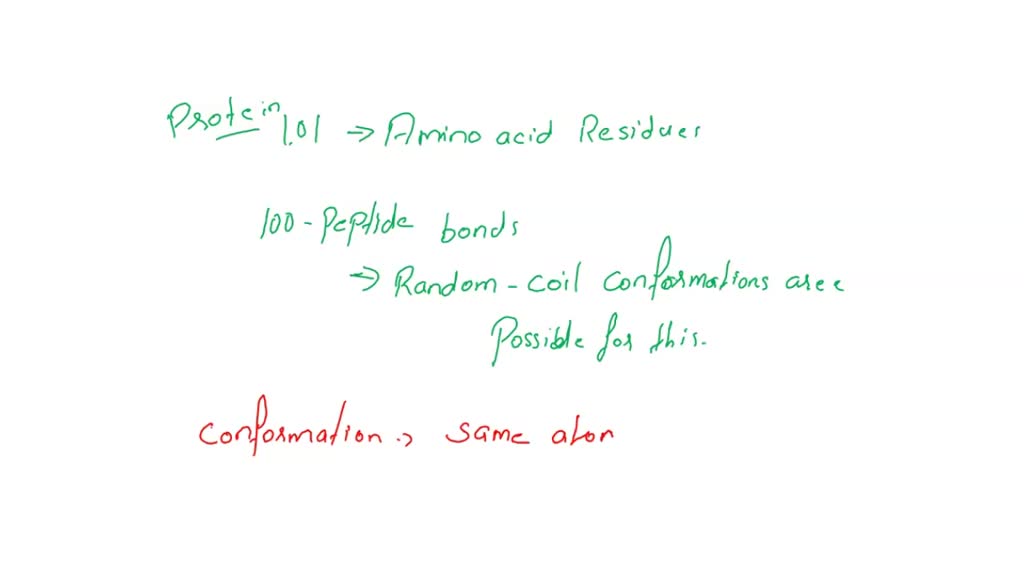 Protein 1.01 → Amino acid Residues
100 - Peptide bonds
→ Random - coil conformations are
Possible for this.
conformation → same atom